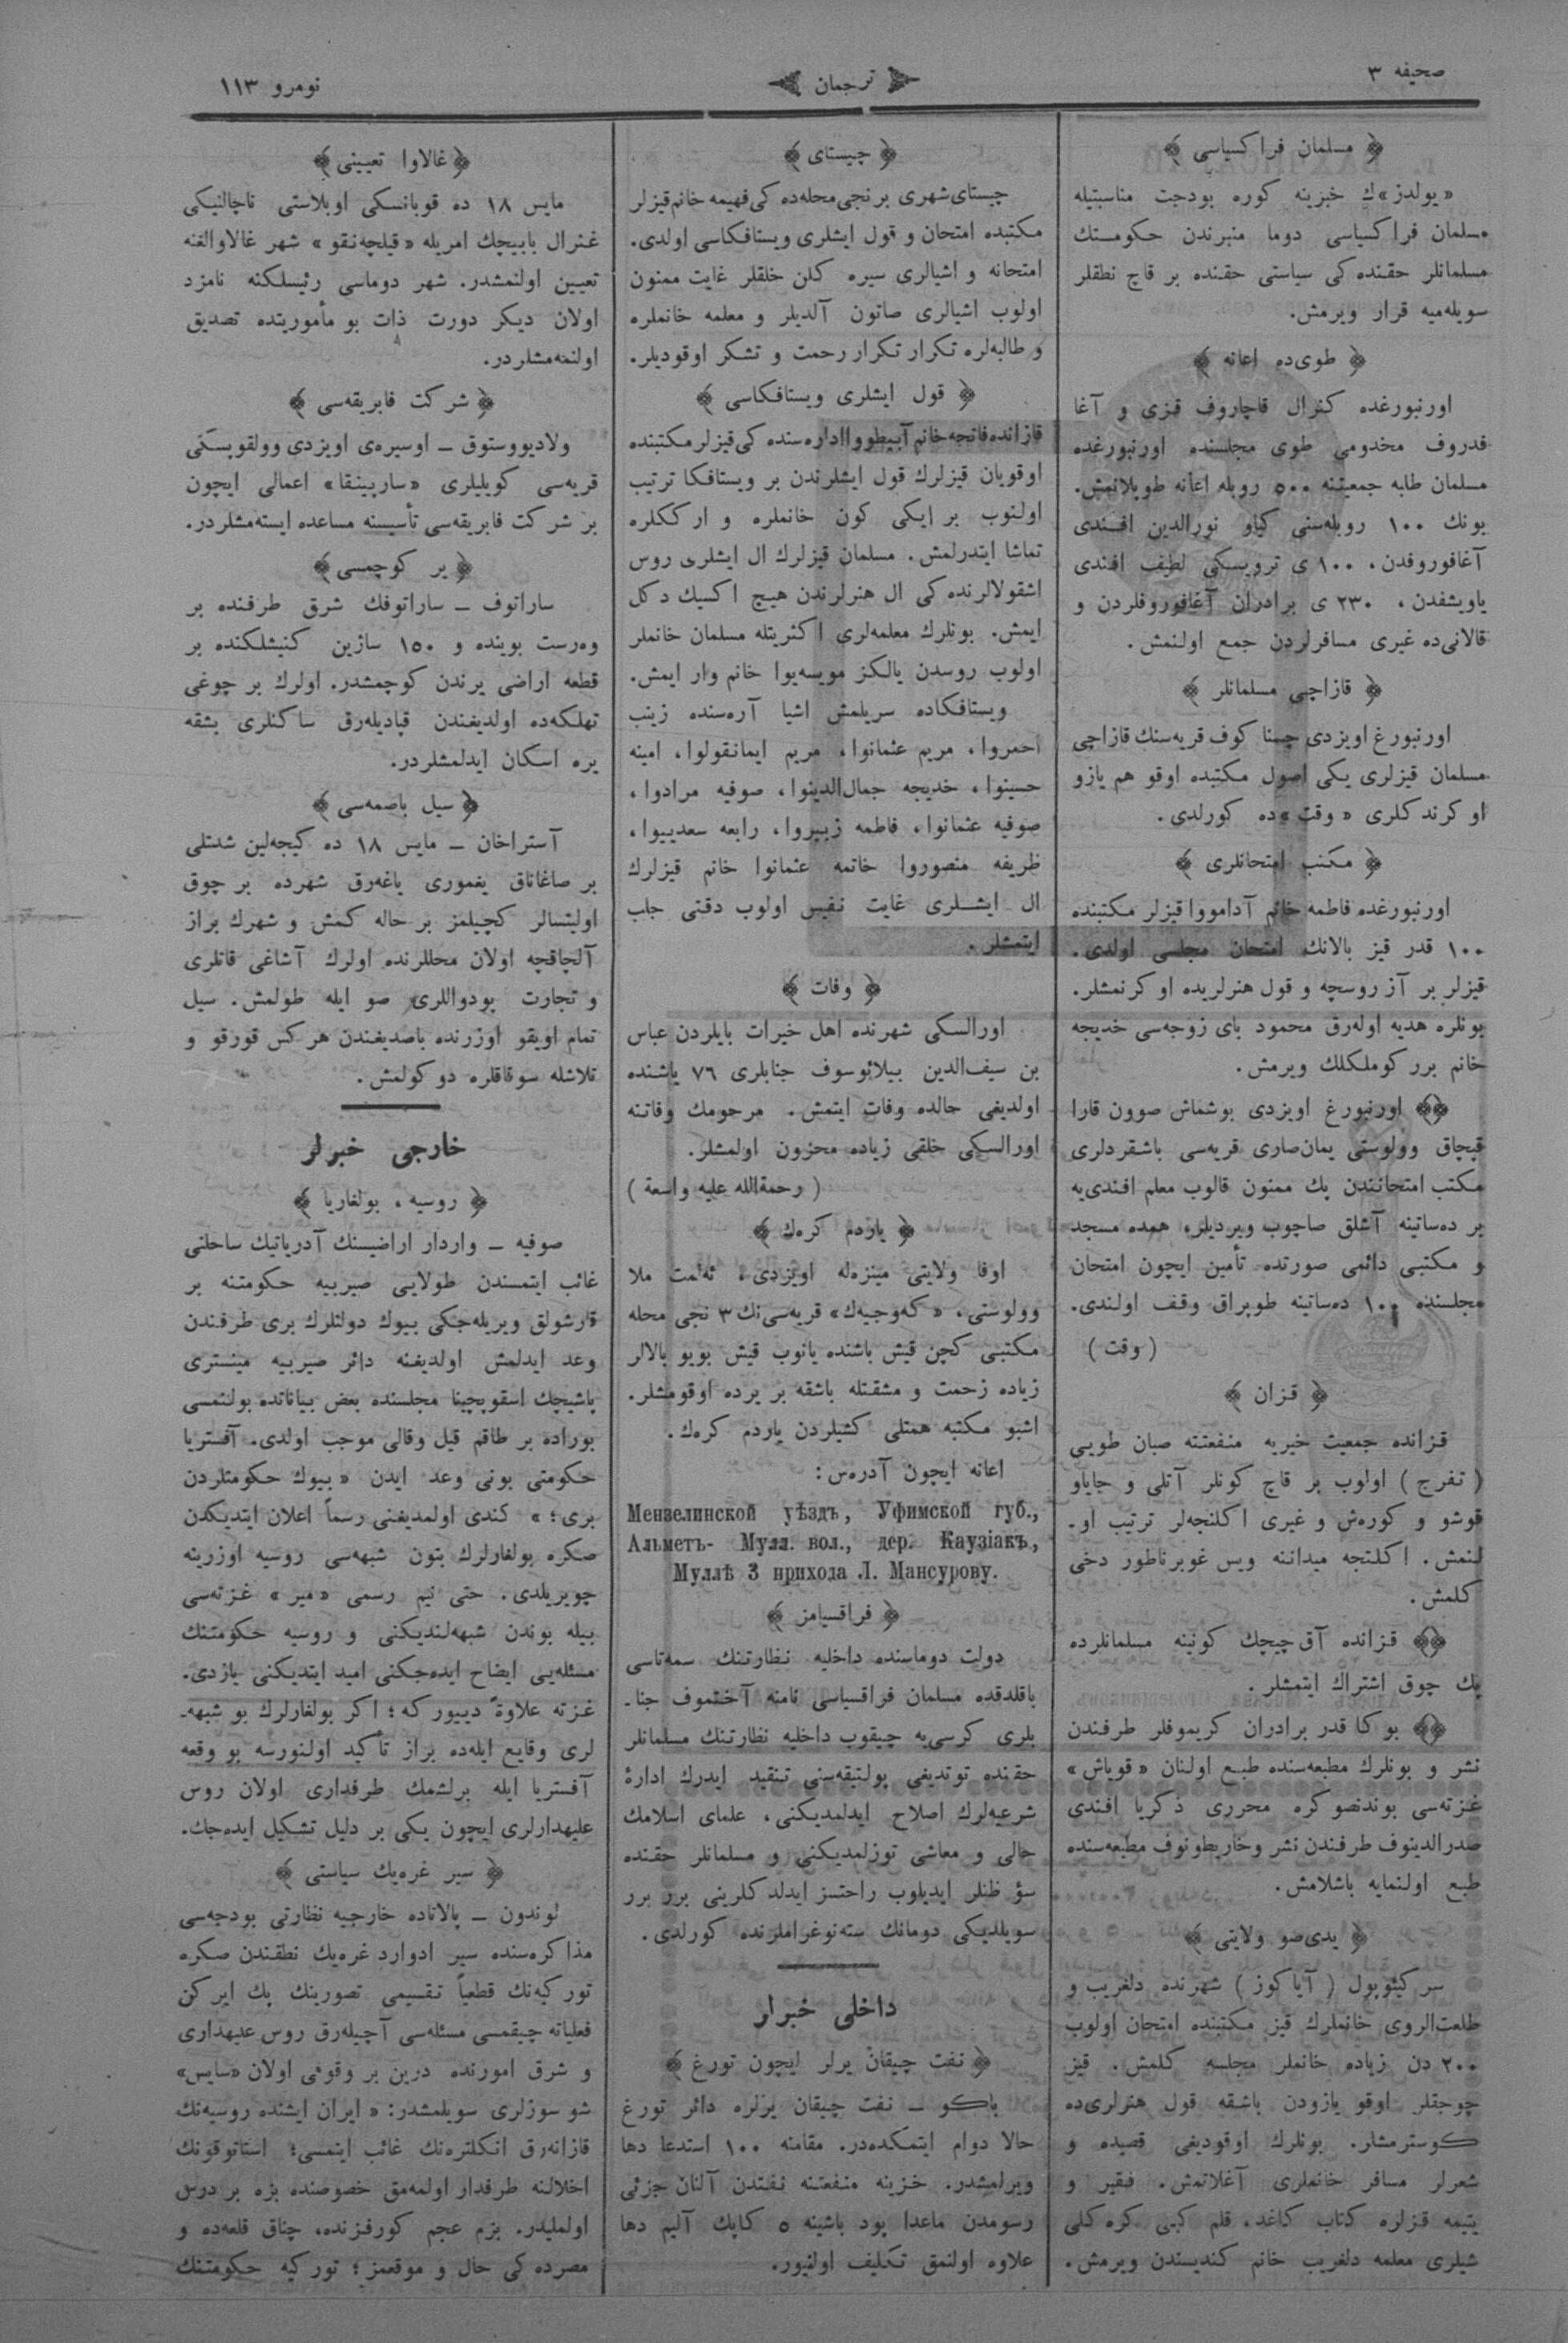 صحیفه ۳
ترجمان
نومرو ۱۱۳
﴿ مسلمان فراکسیاسی ﴾
«یولدز»ك خبرینه کوره بودجت مناسبتیله
مسلمان فراکسیاسی دوما منبرندن حکومتك
مسلمانلر حقنده کی سیاستی حقنده بر قاچ نطقلر
سویله‌میه قرار ویرمش.
﴿ طوی‌ده اعانه ﴾
اورنبورغده کنرال قاچاروف قزی و آغا
قدروف مخدومی طوی مجلسنده اورنبورغده
مسلمان طلبه جمعیتنه ۵۰۰ روبله اعانه طوپلانمش.
بونك ۱۰۰ روبله‌سنی کیاو نورالدین افندی
آغافوروفدن، ۱۰۰ ی ترویسکی لطیف افندی
یاویشفدن، ۲۳۰ ی برادران آغافوروفلردن و
قالانی‌ده غیری مسافرلردن جمع اولنمش.
﴿ قازاچی مسلمانلر ﴾
اورنبورغ اویزدی چسنا کوف قریه‌سنك قازاچی
مسلمان قیزلری یکی اصول مکتبده اوقو هم یازو
او کرندکلری «وقت»ده کورلدی.
﴿ مکتب امتحانلری ﴾
اورنبورغده فاطمه خانم آدامووا قیزلر مکتبنده
۱۰۰ قدر قیز بالانك امتحان مجلسی اولدی.
قیزلر بر آز روسچه و قول هنرلریده او کرنمشلر.
بونلره هدیه اوله‌رق محمود بای زوجه‌سی خدیجه
خانم برر کوملکلك ویرمش.
﴿﴾ اورنبورغ اویزدی بوشماش صوون قارا
قپچاق وولوستی یمان‌صاری قریه‌سی باشقردلری
مکتب امتحانندن پك ممنون قالوب معلم افندی‌یه
بر ده‌ساتینه آشلق صاچوب ویردیلر، همده مسجد
و مکتبی دائمی صورتده تأمین ایچون امتحان
مجلسنده ۱۰۰ ده‌ساتینه طوپراق وقف اولندی.
( وقت )
﴿ قزان ﴾
قزانده جمعیت خیریه منفعتنه صبان طویی
( تفرج ) اولوب بر قاچ کونلر آتلی و جایاو
قوشو و کوره‌ش و غیری اکلنجه‌لر ترتیب او-
لنمش. اکلنجه میداننه ویس غوبرناطور دخی
کلمش.
﴿﴾ قزانده آق چیچك کونینه مسلمانلرده
پك چوق اشتراك ایتمشلر.
﴿﴾ بو کا قدر برادران کریموفلر طرفندن
نشر و بونلرك مطبعه‌سنده طبع اولنان «قویاش»
غزته‌سی بوندنصوکره محرری ذکریا افندی
صدرالدینوف طرفندن نشر وخاریطونوف مطبعه‌سنده
طبع اولنمایه باشلامش.
﴿ یدی‌صو ولایتی ﴾
سرکیئوپول ( آیاکوز ) شهرنده دلغریب و
طلعت‌الروی خانملرك قیز مکتبنده امتحان اولوب
۲۰۰ دن زیاده خانملر مجلسه کلمش. قیز
چوجقلر اوقو یازودن باشقه قول هنرلری‌ده
کوسترمشلر. بونلرك اوقودیغی قصیده و
شعرلر مسافر خانملری آغلاتمش. فقیر و
یتیمه قزلره کتاب کاغد، قلم کبی کره‌کلی
شیلری معلمه دلغریب خانم کندیسندن ویرمش.
﴿ چیستای ﴾
چیستای شهری برنجی محله‌ده کی فهیمه خانم قیزلر
مکتبده امتحان و قول ایشلری ویستافکاسی اولدی.
امتحانه و اشیالری سیره کلن خلقلر غایت ممنون
اولوب اشیالری صاتون آلدیلر و معلمه خانملره
و طالبه‌لره تکرار تکرار رحمت و تشکر اوقودیلر.
﴿ قول ایشلری ویستافکاسی ﴾
قازانده فاتحه خانم آبیطووا اداره‌سنده کی قیزلر مکتبنده
اوقویان قیزلرك قول ایشلرندن بر ویستافکا ترتیب
اولنوب بر ایکی کون خانملره و ارککلره
تماشا ایتدرلمش. مسلمان قیزلرك ال ایشلری روس
اشقولالرنده کی ال هنرلرندن هیچ اکسیك دکل
ایمش. بونلرك معلمه‌لری اکثریتله مسلمان خانملر
اولوب روسدن یالکز مویسه‌یوا خانم وار ایمش.
ویستافکاده سریلمش اشیا آره‌سنده زینب
احمروا، مریم عثمانوا، مریم ایمانقولوا، امینه
حسینوا، خدیجه جمال‌الدینوا، صوفیه مرادوا،
صوفیه عثمانوا، فاطمه زبیروا، رابعه سعدییوا،
ظریفه منصوروا خاتمه عثمانوا خانم قیزلرك
ال ایشلری غایت نفیس اولوب دقتی جلب
ایتمشلر.
﴿ وفات ﴾
اورالسکی شهرنده اهل خیرات بایلردن عباس
بن سیف‌الدین بیلائوسوف جنابلری ۷٦ یاشنده
اولدیغی حالده وفات ایتمش. مرحومك وفاتنه
اورالسکی خلقی زیاده محزون اولمشلر.
( رحمةالله علیه واسعة )
﴿ یاردم کره‌ك ﴾
اوفا ولایتی مینزه‌له اویزدی، ئه‌لمت ملا
وولوستی، «که‌وجیه‌ك» قریه‌سی‌نك ۳ نجی محله
مکتبی کچن قیش باشنده یانوب قیش بویو بالالر
زیاده زحمت و مشقتله باشقه بر یرده اوقومشلر.
اشبو مکتبه همتلی کشیلردن یاردم کره‌ك.
اعانه ایچون آدره‌س:
Мензелинской уѣздъ, Уфимской губ.,
Альметъ- Мулл. вол., дер. Каузіакъ,
Муллѣ 3 прихода Л. Мансурову.
﴿ فراقسیامز ﴾
دولت دوماسنده داخلیه نظارتنك سمه‌تاسی
باقلدقده مسلمان فراقسیاسی نامنه آختموف جنا-
بلری کرسی‌یه چیقوب داخلیه نظارتنك مسلمانلر
حقنده توتدیغی پولتیقه‌سنی تنقید ایدرك ادارۀ
شرعیه‌لرك اصلاح ایدلمدیکنی، علمای اسلامك
حالی و معاشی توزلمدیکنی و مسلمانلر حقنده
سؤ ظنلر ایدیلوب راحتسز ایدلدکلرینی برر برر
سویلدیکی دومانك سته‌نوغراملرنده کورلدی.
داخلی خبرلر
﴿ نفت چیقان یرلر ایچون تورغ ﴾
باکو ـ نفت چیقان یرلره دائر تورغ
حالا دوام ایتمکده‌در. مقامنه ۱۰۰ استدعا دها
ویرلمشدر. خزینه منفعتنه نفتدن آلنان جزئی
رسومدن ماعدا پود باشینه ۵ کاپك آلیم دها
علاوه اولنمق تکلیف اولنیور.
﴿ غالاوا تعیینی ﴾
مایس ۱۸ ده قوبانسکی اوبلاستی ناچالنیکی
غنرال بابیچك امریله «قیلچه‌نقو» شهر غالاوالغنه
تعیین اولنمشدر. شهر دوماسی رئیسلکنه نامزد
اولان دیکر دورت ذات بو مأموریتده تصدیق
اولنمه‌مشلردر.
﴿ شرکت فابریقه‌سی ﴾
ولادیووستوق ـ اوسیره‌ی اویزدی وولقوپسکی
قریه‌سی کویلیلری «سارپینقا» اعمالی ایچون
بر شرکت فابریقه‌سی تأسیسنه مساعده ایسته‌مشلردر.
﴿ یر کوچمسی ﴾
ساراتوف ـ ساراتوفك شرق طرفنده بر
وه‌رست بوینده و ۱۵۰ سازین کنیشلکنده بر
قطعه اراضی یرندن کوچمشدر. اولرك بر چوغی
تهلکه‌ده اولدیغندن قپادیله‌رق ساکنلری بشقه
یره اسکان ایدلمشلردر.
﴿ سیل باصمه‌سی ﴾
آستراخان ـ مایس ۱۸ ده کیجه‌لین شدتلی
بر صاغاناق یغموری یاغه‌رق شهرده بر چوق
اولیتسالر کچیلمز بر حاله کمش و شهرك براز
آلچاقچه اولان محللرنده اولرك آشاغی قاتلری
و تجارت پودواللری صو ایله طولمش. سیل
تمام اویقو اوزرنده باصدیغندن هرکس قورقو و
تلاشله سوقاقلره دوکولمش.
خارجی خبرلر
﴿ روسیه، بولغاریا ﴾
صوفیه ـ واردار اراضیسنك آدریاتیك ساحلنی
غائب ایتمسندن طولایی صیربیه حکومتنه بر
قارشولق ویریله‌جکی بیوك دولتلرك بری طرفندن
وعد ایدلمش اولدیغنه دائر صیربیه مینستری
پاشیچك اسقوپچینا مجلسنده بعض بیاناتده بولنمسی
بوراده بر طاقم قیل وقالی موجب اولدی. آفستریا
حکومتی بونی وعد ایدن «بیوك حکومتلردن
بری؛» کندی اولمدیغنی رسماً اعلان ایتدیکدن
صکره بولغارلرك بتون شبهه‌سی روسیه اوزرینه
چویریلدی. حتی نیم رسمی «میر» غزته‌سی
بیله بوندن شبهه‌لندیکنی و روسیه حکومتنك
مسئله‌یی ایضاح ایده‌جکنی امید ایتدیکنی یازدی.
غزته علاوةً دییور که؛ اکر بولغارلرك بو شبهه-
لری وقایع ایله‌ده براز تأکید اولنورسه بو وقعه
آفستریا ایله برلشمك طرفداری اولان روس
علیهدارلری ایچون یکی بر دلیل تشکیل ایده‌جك.
﴿ سیر غره‌یك سیاستی ﴾
لوندون ـ پالاتاده خارجیه نظارتی بودجه‌سی
مذاکره‌سنده سیر ادوارد غره‌یك نطقندن صکره
تورکیه‌نك قطعیاً تقسیمی تصورینك پك ایرکن
فعلیاته چیقمسی مسئله‌سی آچیله‌رق روس علیهداری
و شرق امورنده درین بر وقوفی اولان «سایس»
شو سوزلری سویلمشدر: «ایران ایشنده روسیه‌نك
قازانه‌رق انکلتره‌نك غائب ایتمسی؛ استاتوقونك
اخلالنه طرفدار اولمه‌مق خصوصنده بزه بر درس
اولملیدر. بزم عجم کورفزنده، چناق قلعه‌ده و
مصرده کی حال و موقعمز؛ تورکیه حکومتنك